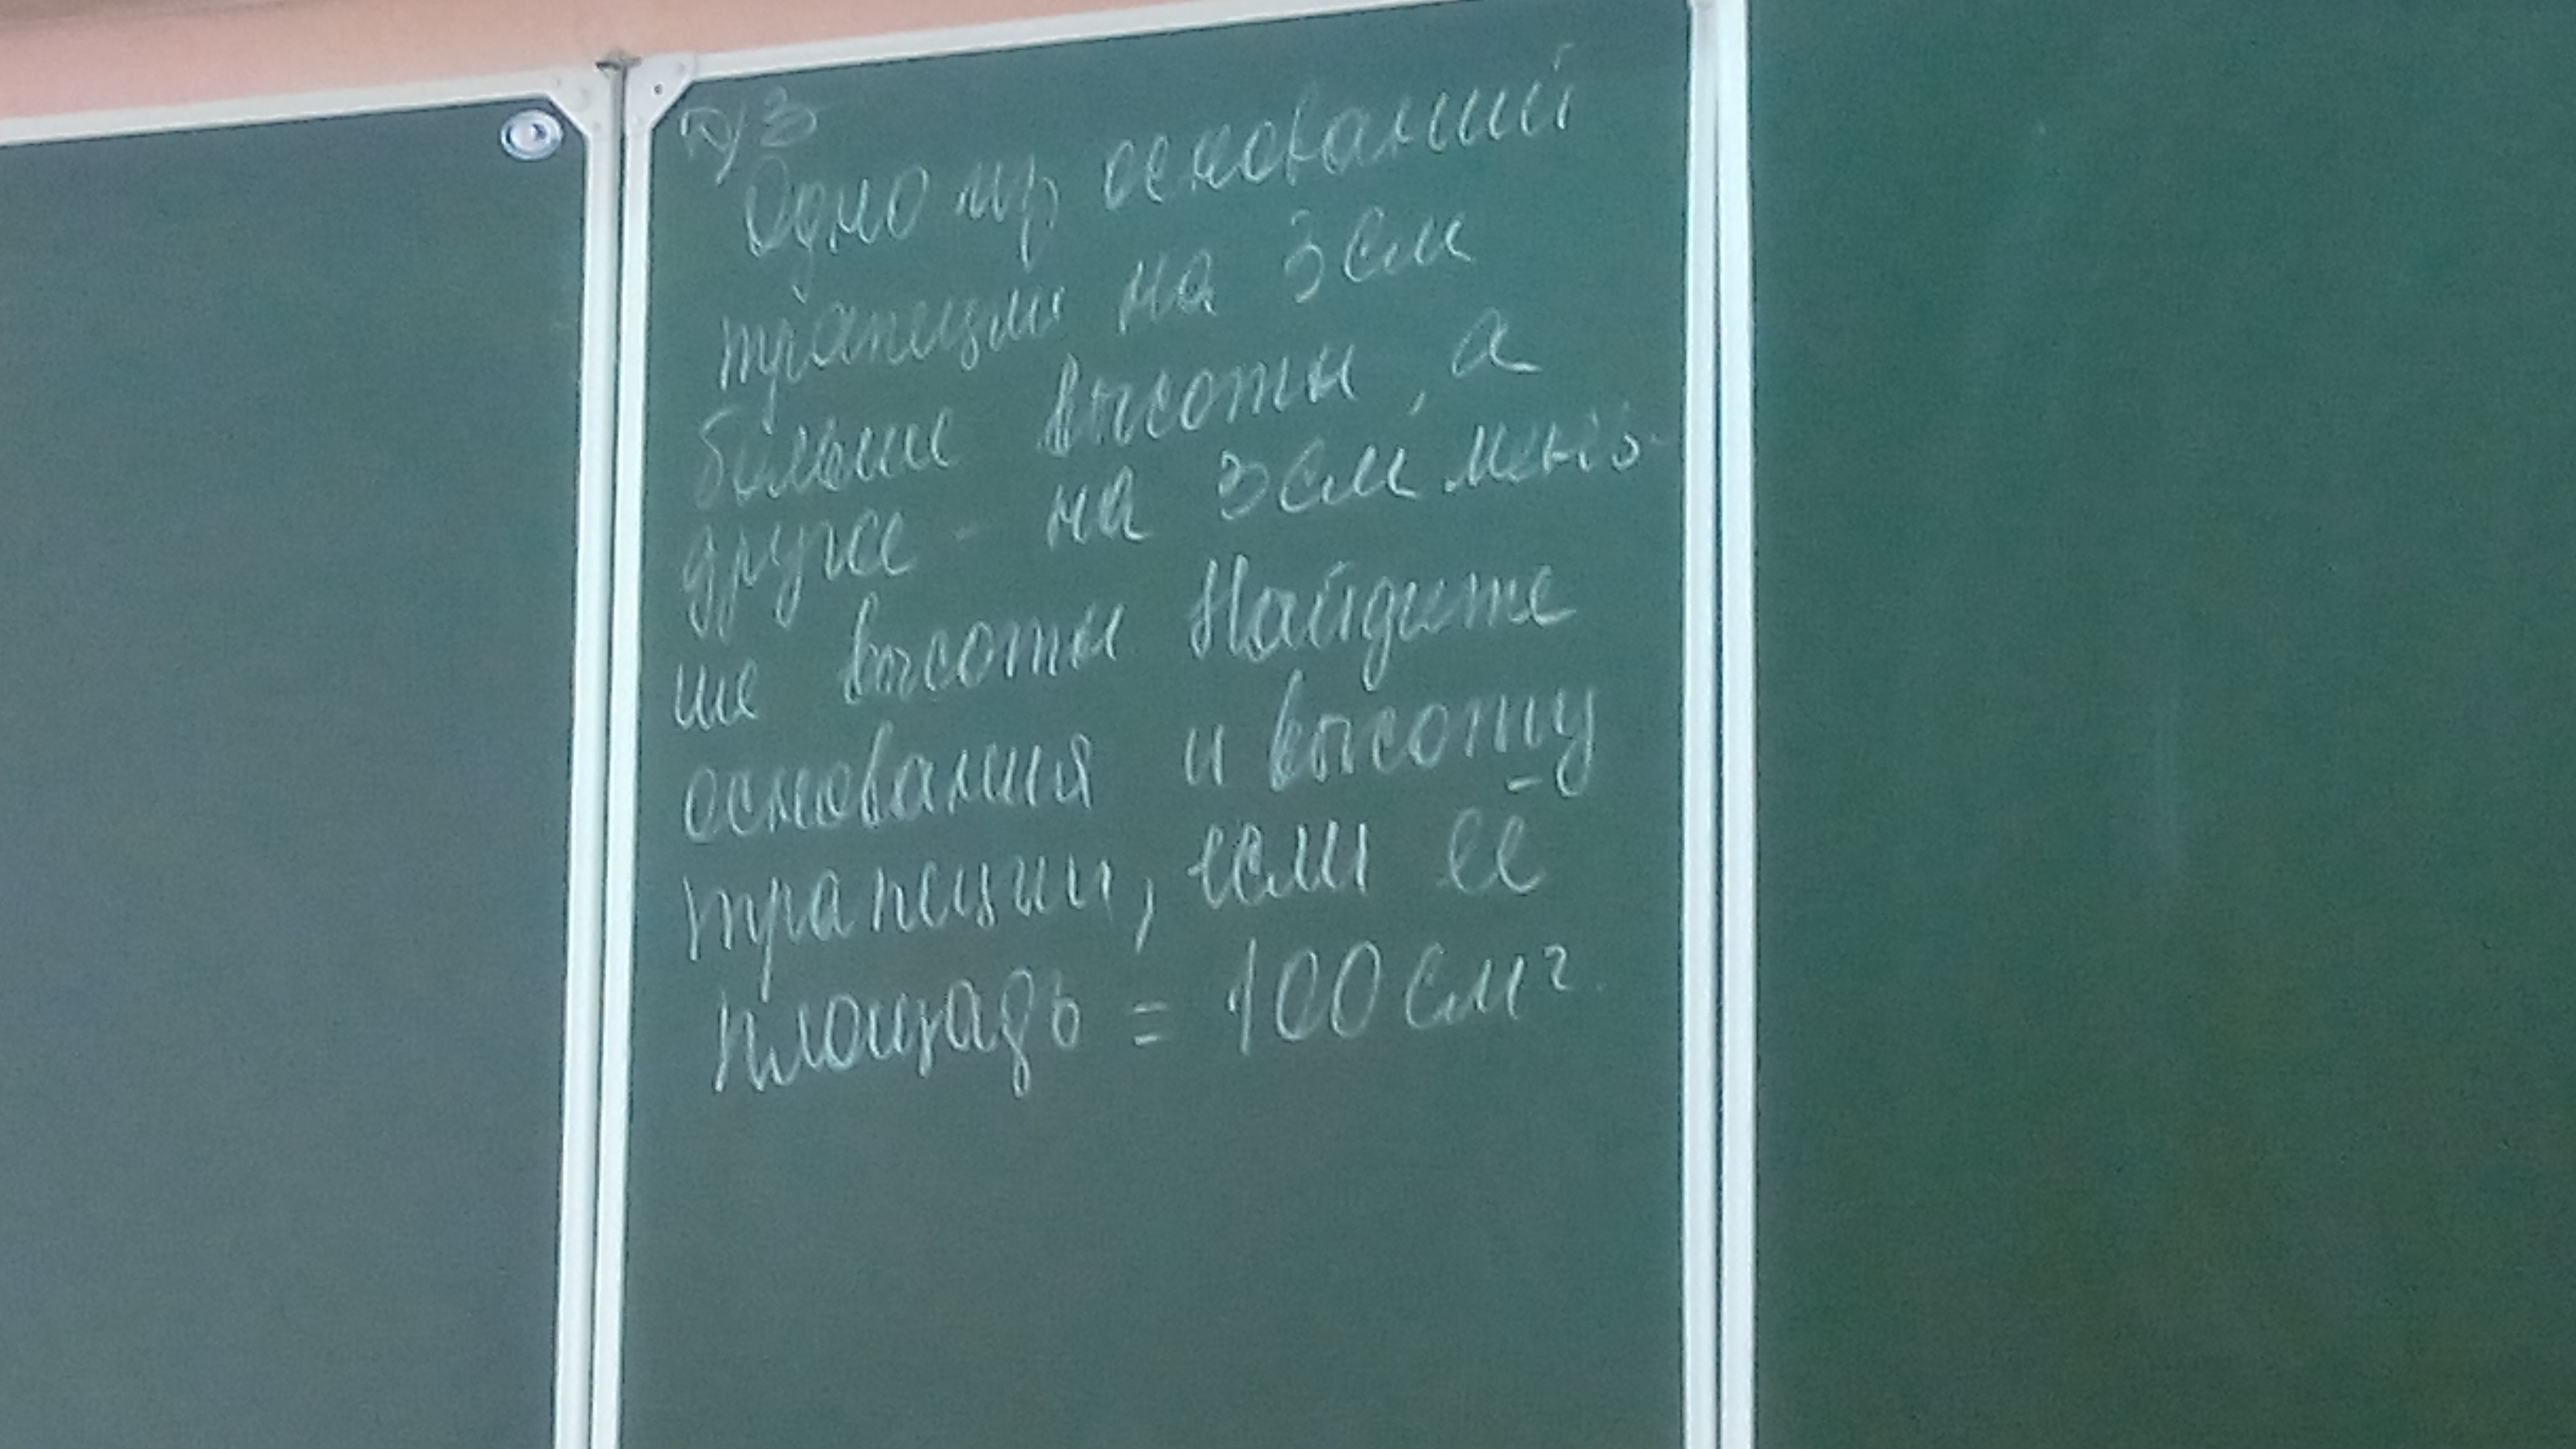 Д/З
Одно из оснований
трапеции на 3см
больше высоты, а
другое - на 3см мень-
ше высоты. Найдите
основания и высоту
трапеции, если её
площадь = 100 см²